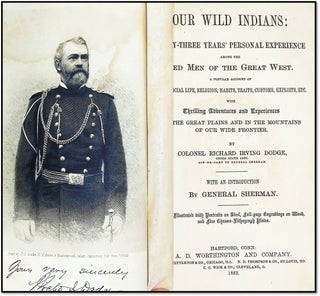 Yours very sincerely
OUR WILD INDIANS:
Y-THREE YEARS' PERSONAL EXPERIENCE
AMONG THE
ED MEN OF THE GREAT WEST.
A POPULAR ACCOUNT OF
CIAL LIFE, RELIGION, HABITS, TRAITS, CUSTOMS, EXPLOITS, ETC.
WITH
Thrilling Adventures and Experiences
THE GREAT PLAINS AND IN THE MOUNTAINS
OF OUR WIDE FRONTIER.
BY
COLONEL RICHARD IRVING DODGE,
UNITED STATES ARMY.
AID-DE-CAMP TO GENERAL SHERMAN.
WITH AN INTRODUCTION
BY GENERAL SHERMAN.
Illustrated with Portraits on Steel, Full-page Engravings on Wood,
and Fine Chromo-Lithograph Plates.
HARTFORD, CONN:
A. D. WORTHINGTON AND COMPANY.
NETTLETON & CO., CHICAGO, ILL. N. D. THOMPSON & CO., ST. LOUIS, MO.
1882.